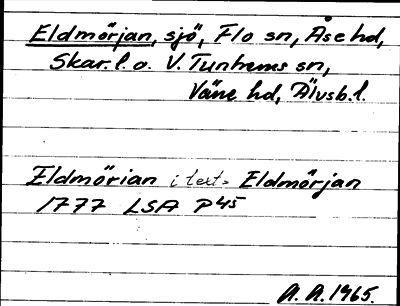 Eldmörjan, sjö, Flo sn, Åse hd,
Skar. l. o. V. Tunhems sn,
Väne hd, Älvsb. l.
Eldmörian i text = Eldmörjan
1777 LSA P45
A. A. 1965.